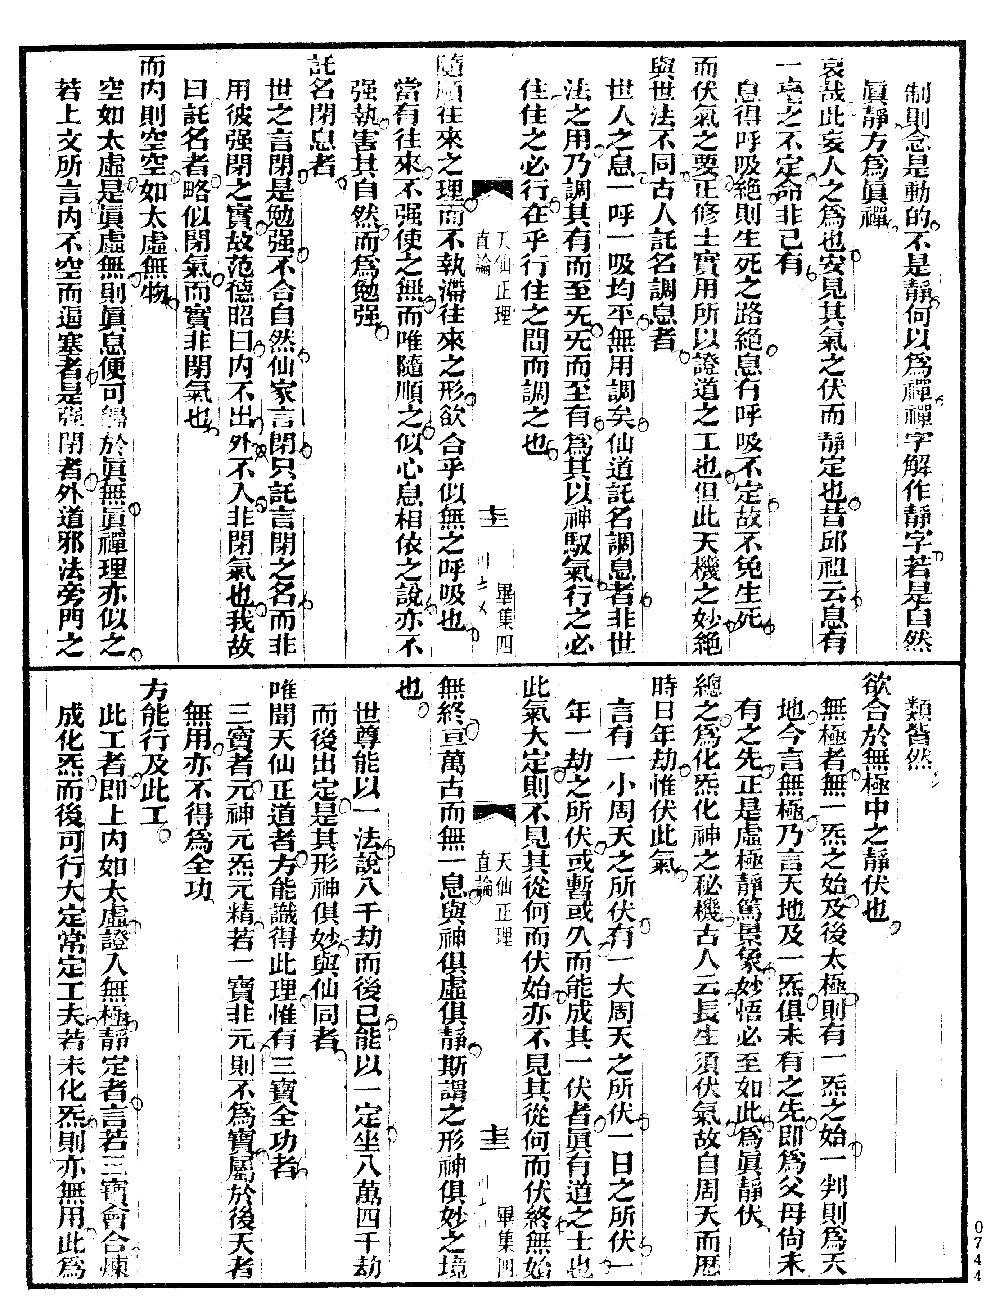 制則念是動的不是靜何以爲禪禪字解作靜字若是自然
眞靜方爲眞禪
哀哉此妄人之爲也安見其氣之伏而靜定也昔邱祖云息有
一毫之不定命非己有
息得呼吸絶則生死之路絶息有呼吸不定故不免生死
而伏氣之要正修士實用所以證道之工也但此天機之妙絶
與世法不同古人託名調息者
世人之息一呼一吸均平無用調矣仙道託名調息者非世
法之用乃調其有而至无无而至有爲其以神馭氣行之必
住住之必行在乎行住之間而調之也
天仙正理
直論
十三
畢集四
隨順往來之理而不執滯往來之形欲合乎似無之呼吸也
當有往來不强使之無而唯隨順之似心息相依之說亦不
强執害其自然而爲勉强
託名閉息者
世之言閉是勉强不合自然仙家言閉只託言閉之名而非
用彼强閉之實故范德昭曰内不出外不入非閉氣也我故
曰託名者略似閉氣而實非閉氣也
而内則空空如太虛無物
空如太虛是眞虛無則眞息便可歸於眞無眞禪理亦似之
若上文所言内不空而逼塞者是强閉者外道邪法旁門之
類皆然
欲合於無極中之靜伏也
無極者無一炁之始及後太極則有一炁之始一判則爲天
地今言無極乃言天地及一炁俱未有之先即爲父母尙未
有之先正是虛極靜篤景象妙悟必至如此爲眞靜伏
總之爲化炁化神之秘機古人云長生須伏氣故自周天而歷
時日年劫惟伏此氣
言有一小周天之所伏有一大周天之所伏一日之所伏一
年一劫之所伏或暫或久而能成其一伏者眞有道之士也
此氣大定則不見其從何而伏始亦不見其從何而伏終無始
天仙正理
直論
十三
畢集四
無終亘萬古而無一息與神俱虛俱靜斯謂之形神俱妙之境
也
世尊能以一法說八千劫而後已能以一定坐八萬四千劫
而後出定是其形神俱妙與仙同者
唯聞天仙正道者方能識得此理惟有三寶全功者
三寶者元神元炁元精若一寶非元則不爲寶屬於後天者
無用亦不得爲全功
方能行及此工
此工者即上内如太虛證入無極靜定者言若三寶會合煉
成化炁而後可行大定常定工夫若未化炁則亦無用此爲
0744